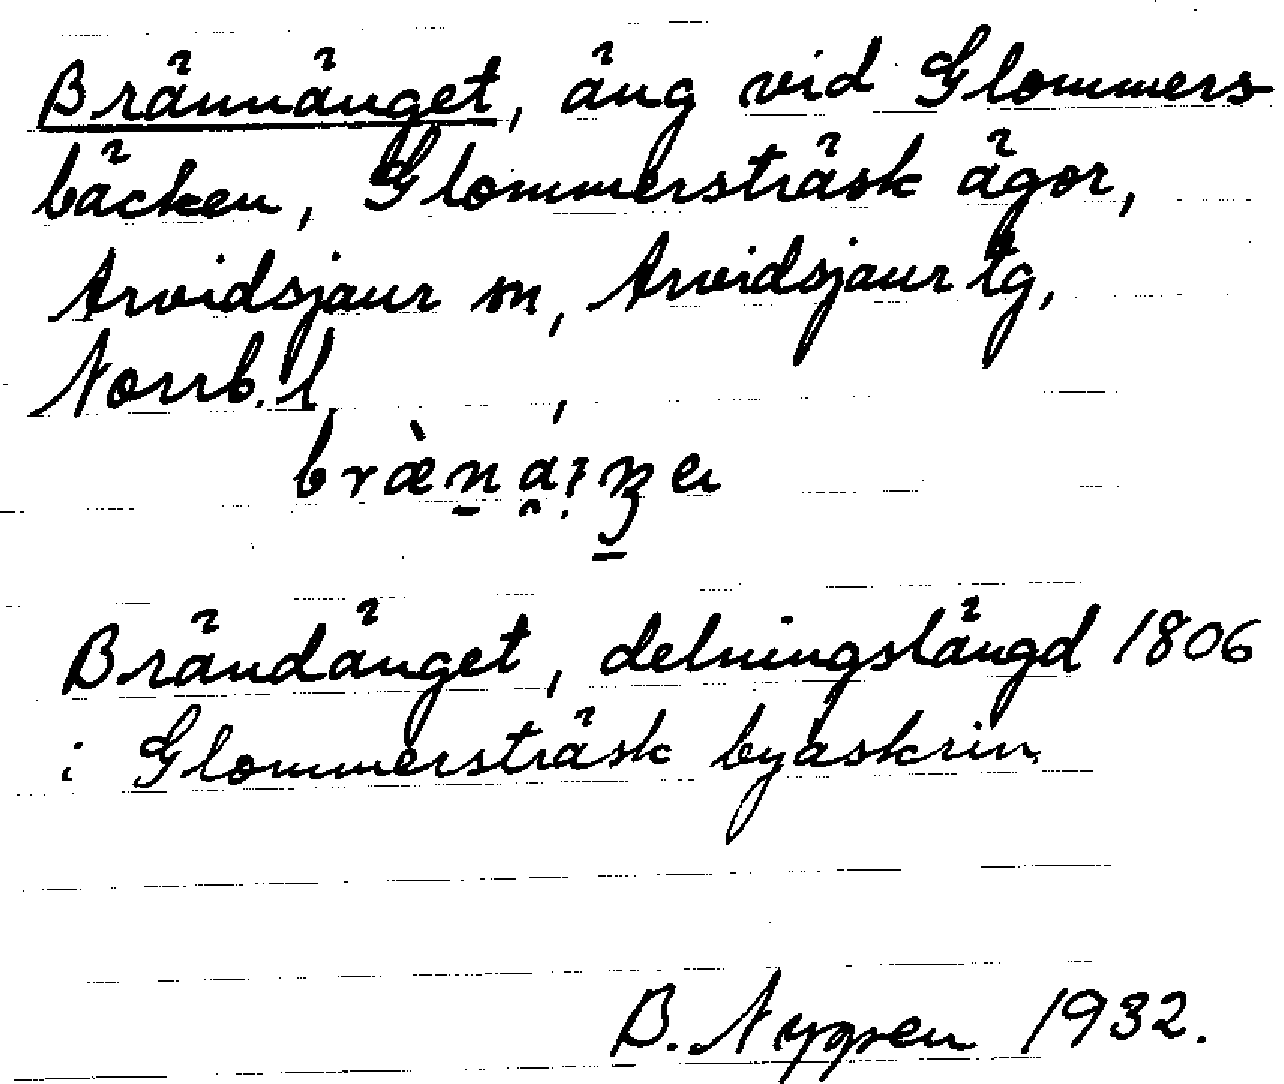 Brännänget, äng vid Glommers
bäcken, Glommersträsk ägor,
Arvidsjaur sn, Arvidsjaur tg,
Norrb. l
Brändänget, delningslängd 1806
i Glommersträsk byaskrin.
B. Nygren 1932.